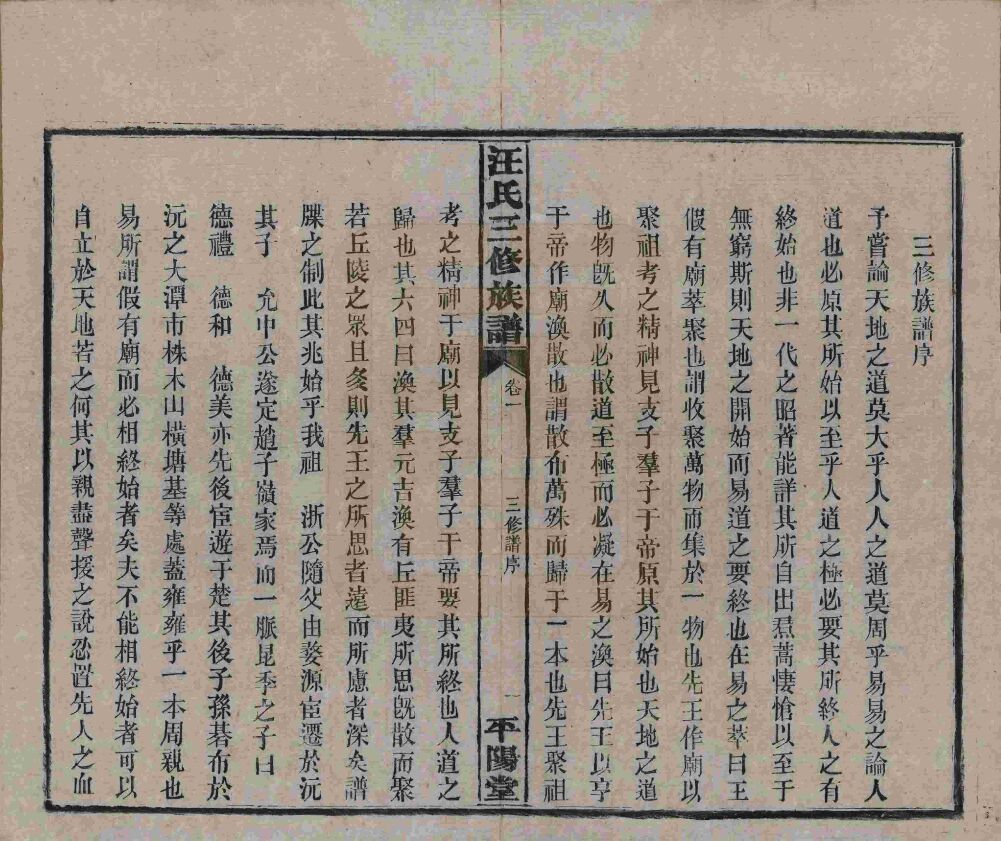 三修族譜序
予嘗論天地之道莫大乎人人之道莫周乎易易之論人
道也必原其所始以至乎人道之極必要其所終人之有
終始也非一代之昭著能詳其所自出焄蒿悽愴以至于
無窮斯則天地之開始而易道之要終也在易之萃曰王
假有廟萃聚也謂收聚萬物而集於一物也先王作廟以
聚祖考之精神見支子羣子于帝原其所始也天地之道
也物旣久而必散道至極而必凝在易之渙曰先王以享
于帝作廟渙散也謂散布萬殊而歸于一本也先王聚祖
汪氏三修族譜
卷一
三修譜序
一
平陽堂
考之精神于廟以見支子羣子于帝要其所終也人道之
歸也其六四曰渙其羣元吉渙有丘匪夷所思旣散而聚
若丘陵之眾且夋則先王之所思者遠而所慮者深矣譜
牒之制此其兆始乎我祖　浙公隨父由婺源宦遷於沅
其子　允中公遂定趙子嶺家焉而一脈昆季之子曰
德禮　德和　德美亦先後宦遊于楚其後子孫碁布於
沅之大潭市株木山橫塘基等處蓋雍雍乎一本周親也
易所謂假有廟而必相終始者矣夫不能相終始者可以
自立於天地若之何其以親盡聲援之說忍置先人之血